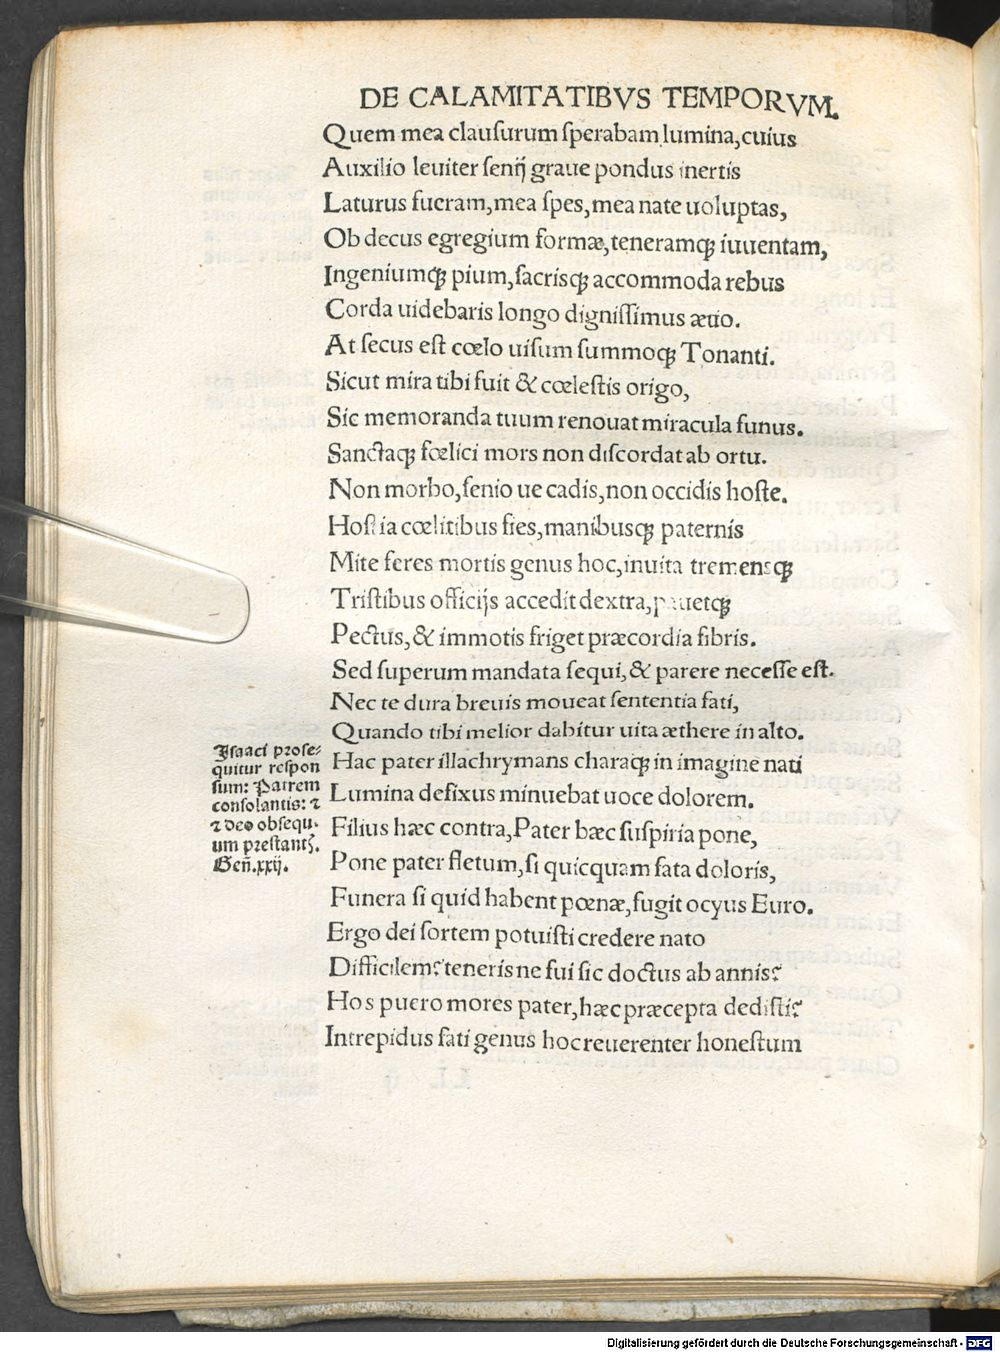 DE CALAMITATIBVS TEMPORVM.
Quem mea clauſurum ſperabam lumina, cuius
Auxilio leuiter ſenij graue pondus inertis
Laturus fueram, mea ſpes, mea nate uoluptas,
Ob decus egregium formæ, teneramqꝫ iuuentam,
Ingeniumqꝫ pium, ſacrisqꝫ accommoda rebus
Corda uidebaris longo digniſſimus æuo.
At ſecus eſt cœlo uiſum ſummoqꝫ Tonanti.
Sicut mira tibi fuit & cœleſtis origo,
Sic memoranda tuum renouat miracula funus.
Sanctaqꝫ fœlici mors non diſcordat ab ortu.
Non morbo, ſenio ue cadis, non occidis hoſte.
Hoſtia cœlitibus fies, manibusqꝫ paternis
Mite feres mortis genus hoc, inuita tremensqꝫ
Triſtibus officijs accedit dextra, pauetqꝫ
Pectus, & immotis friget præcordia fibris.
Sed ſuperum mandata ſequi, & parere neceſſe eſt.
Nec te dura breuis moueat ſententia fati,
Quando tibi melior dabitur uita æthere in alto.
Hac pater illachrymans charaqꝫ in imagine nati
Lumina defixus minuebat uoce dolorem.
Filius hæc contra, Pater hæc ſuſpiria pone,
Pone pater fletum, ſi quicquam fata doloris,
Funera ſi quid habent pœnæ, fugit ocyus Euro.
Ergo dei ſortem potuiſti credere nato
Difficilem? teneris ne fui ſic doctus ab annis?
Hos puero mores pater, hæc præcepta dediſti?
Intrepidus fati genus hoc reuerenter honeſtum
Iſaaci proſe⸗
quitur reſpon
ſum: Patrem
conſolantis: ⁊
⁊ deo obſequi⸗
um preſtantꝭ.
Geñ.xxij.
Digitalisierung gefördert durch die Deutsche Forschungsgemeinschaft - DFG